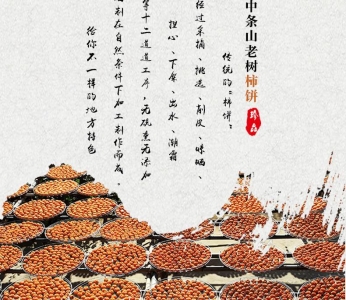 中条山老树柿饼
传统的“柿饼”
经过采摘、挑选、削皮、晾晒、
担心、下架、出水、潮霜
等十二道道工序，无硫熏无添加
剂在自然条件下加工制作而成。
给你不一样的地方特色